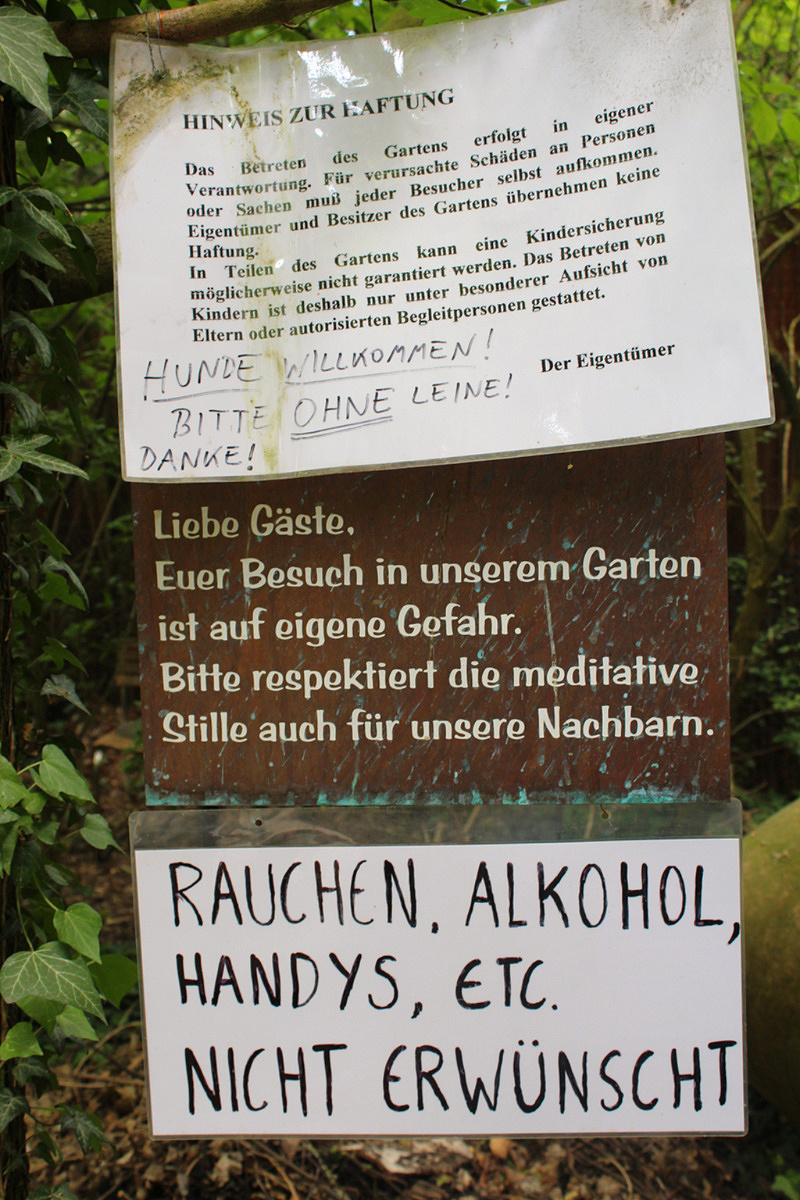 HINWEIS ZUR HAFTUNG
Das Betreten des Gartens erfolgt in eigener
Verantwortung. Für verursachte Schäden an Personen
oder Sachen muß jeder Besucher selbst aufkommen.
Eigentümer und Besitzer des Gartens übernehmen keine
Haftung.
In Teilen des Gartens kann eine Kindersicherung
möglicherweise nicht garantiert werden. Das Betreten von
Kindern ist deshalb nur unter besonderer Aufsicht von
Eltern oder autorisierten Begleitpersonen gestattet.
Der Eigentümer
HUNDE WILLKOMMEN!
BITTE OHNE LEINE!
DANKE!
Liebe Gäste,
Euer Besuch in unserem Garten
ist auf eigene Gefahr.
Bitte respektiert die meditative
Stille auch für unsere Nachbarn.
RAUCHEN, ALKOHOL,
HANDYS, ETC.
NICHT ERWÜNSCHT